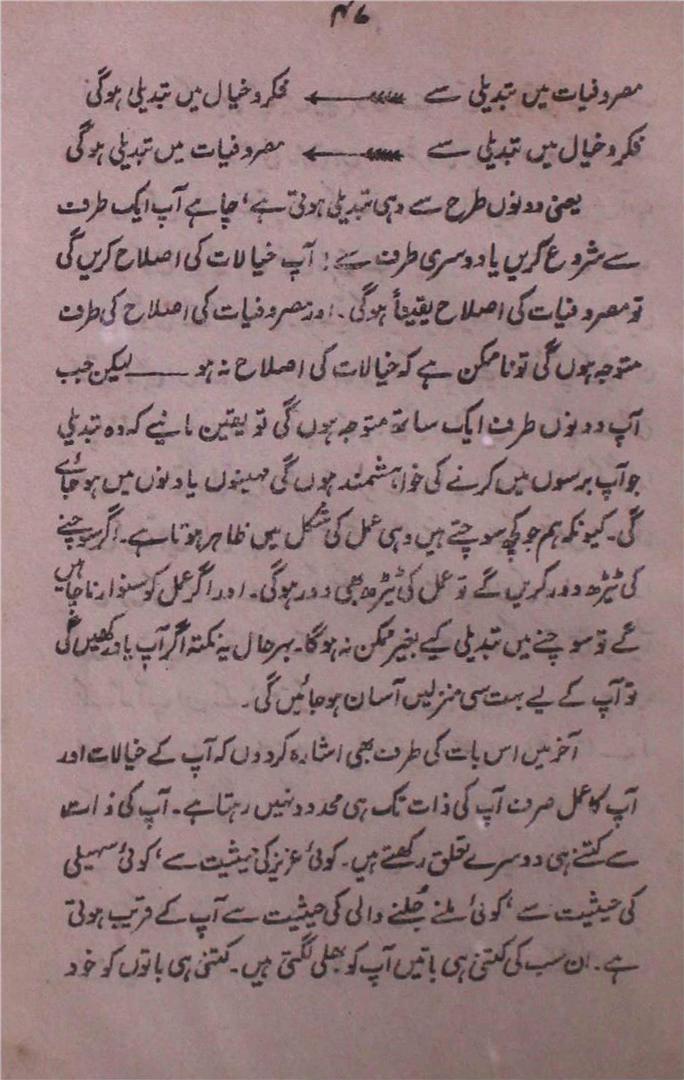 ۴۷
مصروفیات میں تبدیلی سے ← فکر و خیال میں تبدیلی ہوگی
فکر و خیال میں تبدیلی سے ← مصروفیات میں تبدیلی ہوگی
یعنی دونوں طرح سے وہی تبدیلی ہوتی ہے، چاہے آپ ایک طرف
سے شروع کریں یا دوسری طرف سے! آپ خیالات کی اصلاح کریں گی
تو مصروفیات کی اصلاح یقیناً ہوگی۔ اور مصروفیات کی اصلاح کی طرف
متوجہ ہوں گی تو ناممکن ہے کہ خیالات کی اصلاح نہ ہو ـــــ لیکن جب
آپ دونوں طرف ایک ساتھ متوجہ ہوں گی تو یقین مانیے کہ وہ تبدیلی
جو آپ برسوں میں کرنے کی خواہشمند ہوں گی مہینوں یا دنوں میں ہوجائے
گی۔ کیونکہ ہم جو کچھ سوچتے ہیں وہی عمل کی شکل میں ظاہر ہوتا ہے۔ اگر سوچنے
کی ٹیڑھ دور کریں گے تو عمل کی ٹیڑھ بھی دور ہوگی۔ اور اگر عمل کو سنوارنا چاہیں
گے تو سوچنے میں تبدیلی کیے بغیر ممکن نہ ہوگا۔ بہرحال یہ نکتہ اگر آپ یاد رکھیں گی
تو آپ کے لیے بہت سی منزلیں آسان ہوجائیں گی۔
آخر میں اس بات کی طرف بھی اشارہ کردوں کہ آپ کے خیالات اور
آپ کا عمل صرف آپ کی ذات تک ہی محدود نہیں رہتا ہے۔ آپ کی ذات
سے کتنے ہی دوسرے تعلق رکھتے ہیں۔ کوئی عزیز کی حیثیت سے، کوئی سہیلی
کی حیثیت سے، کوئی ملنے جُلنے والی کی حیثیت سے آپ کے قریب ہوتی
ہے۔ ان سب کی کتنی ہی باتیں آپ کو بھلی لگتی ہیں۔ کتنی ہی باتوں کو خود